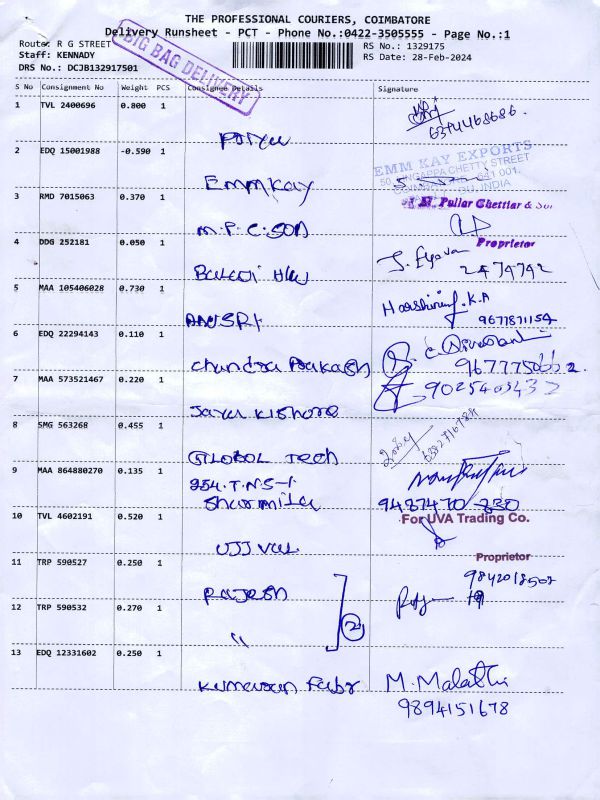 THE PROFESSIONAL COURIERS, COIMBATORE
Delivery Runsheet - PCT - Phone No.:0422-3505555 - Page No.:1
Route: R G STREET
RS No.: 1329175
Staff: KENNADY
RS Date: 28-Feb-2024
DRS No.: DCJB132917501
BIG BAG DELIVERY
S No Consignment No Weight PCS Consignee Details Signature
1 TVL 2400696 0.800 1
2 EDQ 15001988 -0.590 1
EMM KAY EXPORTS
CHETTY STREET
INDIA
Emmkay
3 RMD 7015063 0.370 1
Pullar Chettiar &
M.P.C.SON
Proprietor
4 DDG 252181 0.050 1
2474742
5 MAA 105406028 0.730 1
K.A
9677871154
6 EDQ 22294143 0.110 1
Chandra Prakash
7 MAA 573521467 0.220 1
Jaya Kishore
8 SMG 563268 0.455 1
GLOBOL Tech
9 MAA 864880270 0.135 1
254.T.N.S-1
Sharmila
For UVA Trading Co.
10 TVL 4602191 0.520 1
UJJVAL
Proprietor
11 TRP 590527 0.250 1
Rajesh
12 TRP 590532 0.270 1
"
2
13 EDQ 12331602 0.250 1
Kumaran
M. Malathi
9894151678